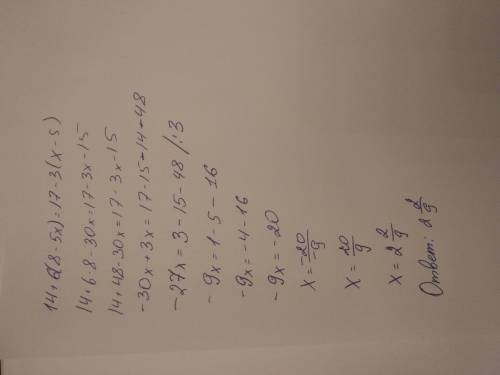 14+6(8-5x)=17-3(x-5)
14+6·8-30x=17-3x-15
14+48-30x=17-3x-15
-30x+3x=17-15-14-48
-27x=3-15-48 /:3
-9x=1-5-16
-9x=-4-16
-9x=-20
x=\frac{-20}{-9}
x=\frac{20}{9}
x=2\frac{2}{9}
Ответ: 2\frac{2}{9}